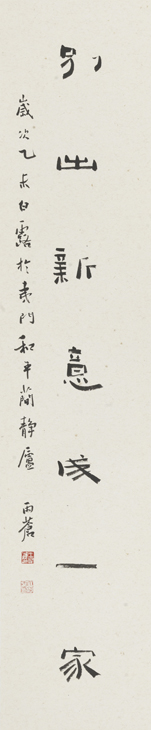 别出新意成一家
歲次乙未白露於夷門和平蘭靜廬 丙蒼